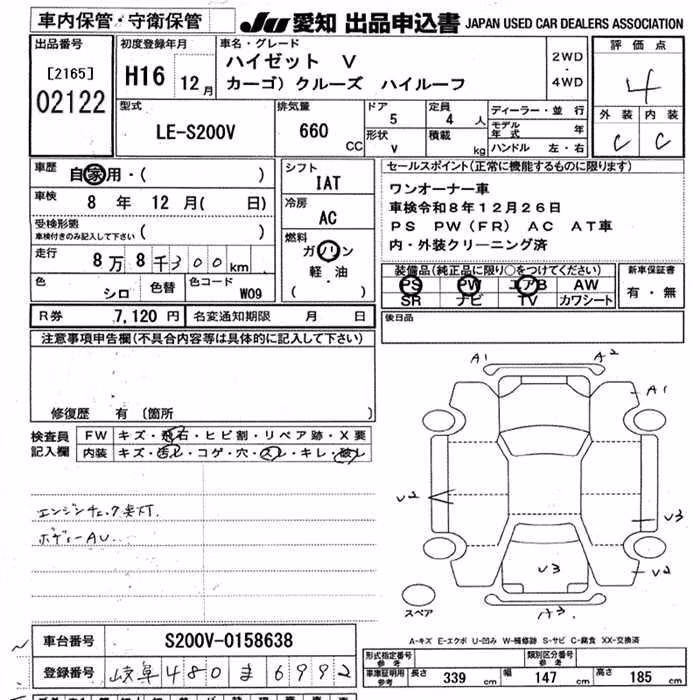 車内保管・守衛保管 JU 愛知 出品申込書 JAPAN USED CAR DEALERS ASSOCIATION
出品番号 [2165] 02122
初度登録年月 H16 12月
車名・グレード ハイゼット V
カーゴ) クルーズ ハイルーフ
2WD・4WD
評価点 4
外装 内装
C C
型式 LE-S200V
排気量 660 CC
ドア 5 定員 4人
形状 V 積載 kg
ディーラー・並行
モデル年式 年
ハンドル 左・右
車歴 自家用・( )
車検 8年 12月( 日)
受検形態 車検付きのみ記入して下さい ( )
走行 8万8千300km
色 シロ 色替 色コード W09
シフト IAT
冷房 AC
燃料 ガソリン
軽・油
( )
セールスポイント(正常に機能するものに限ります)
ワンオーナー車
車検令和8年12月26日
PS PW(FR) AC AT車
内・外装クリーニング済
装備品(純正品に限り○をつけてください)
PS PW エアB AW
SR ナビ TV カワシート
新車保証書
有・無
R券 7,120円 名変通知期限 月 日
後日品
注意事項申告欄(不具合内容等は具体的に記入して下さい)
修復歴 有 (箇所 )
検査員記入欄
FW キズ・飛石・ヒビ割・リペア跡・X要
内装 キズ・汚レ・コゲ・穴・スレ・キレ・破レ
エンジンチェック点灯.
ボディーAU..
A1 A2
A1
U2
U3
U3
U2
A3
スペア
A-キズ E-エクボ U-凹み W-補修跡 S-サビ C-腐食 XX-交換済
車台番号 S200V-0158638
登録番号 岐阜480ま6992
形式指定番号 参考 類別区分番号 参考
車庫証明用参考 長さ 339 cm 幅 147 cm 高さ 185 cm